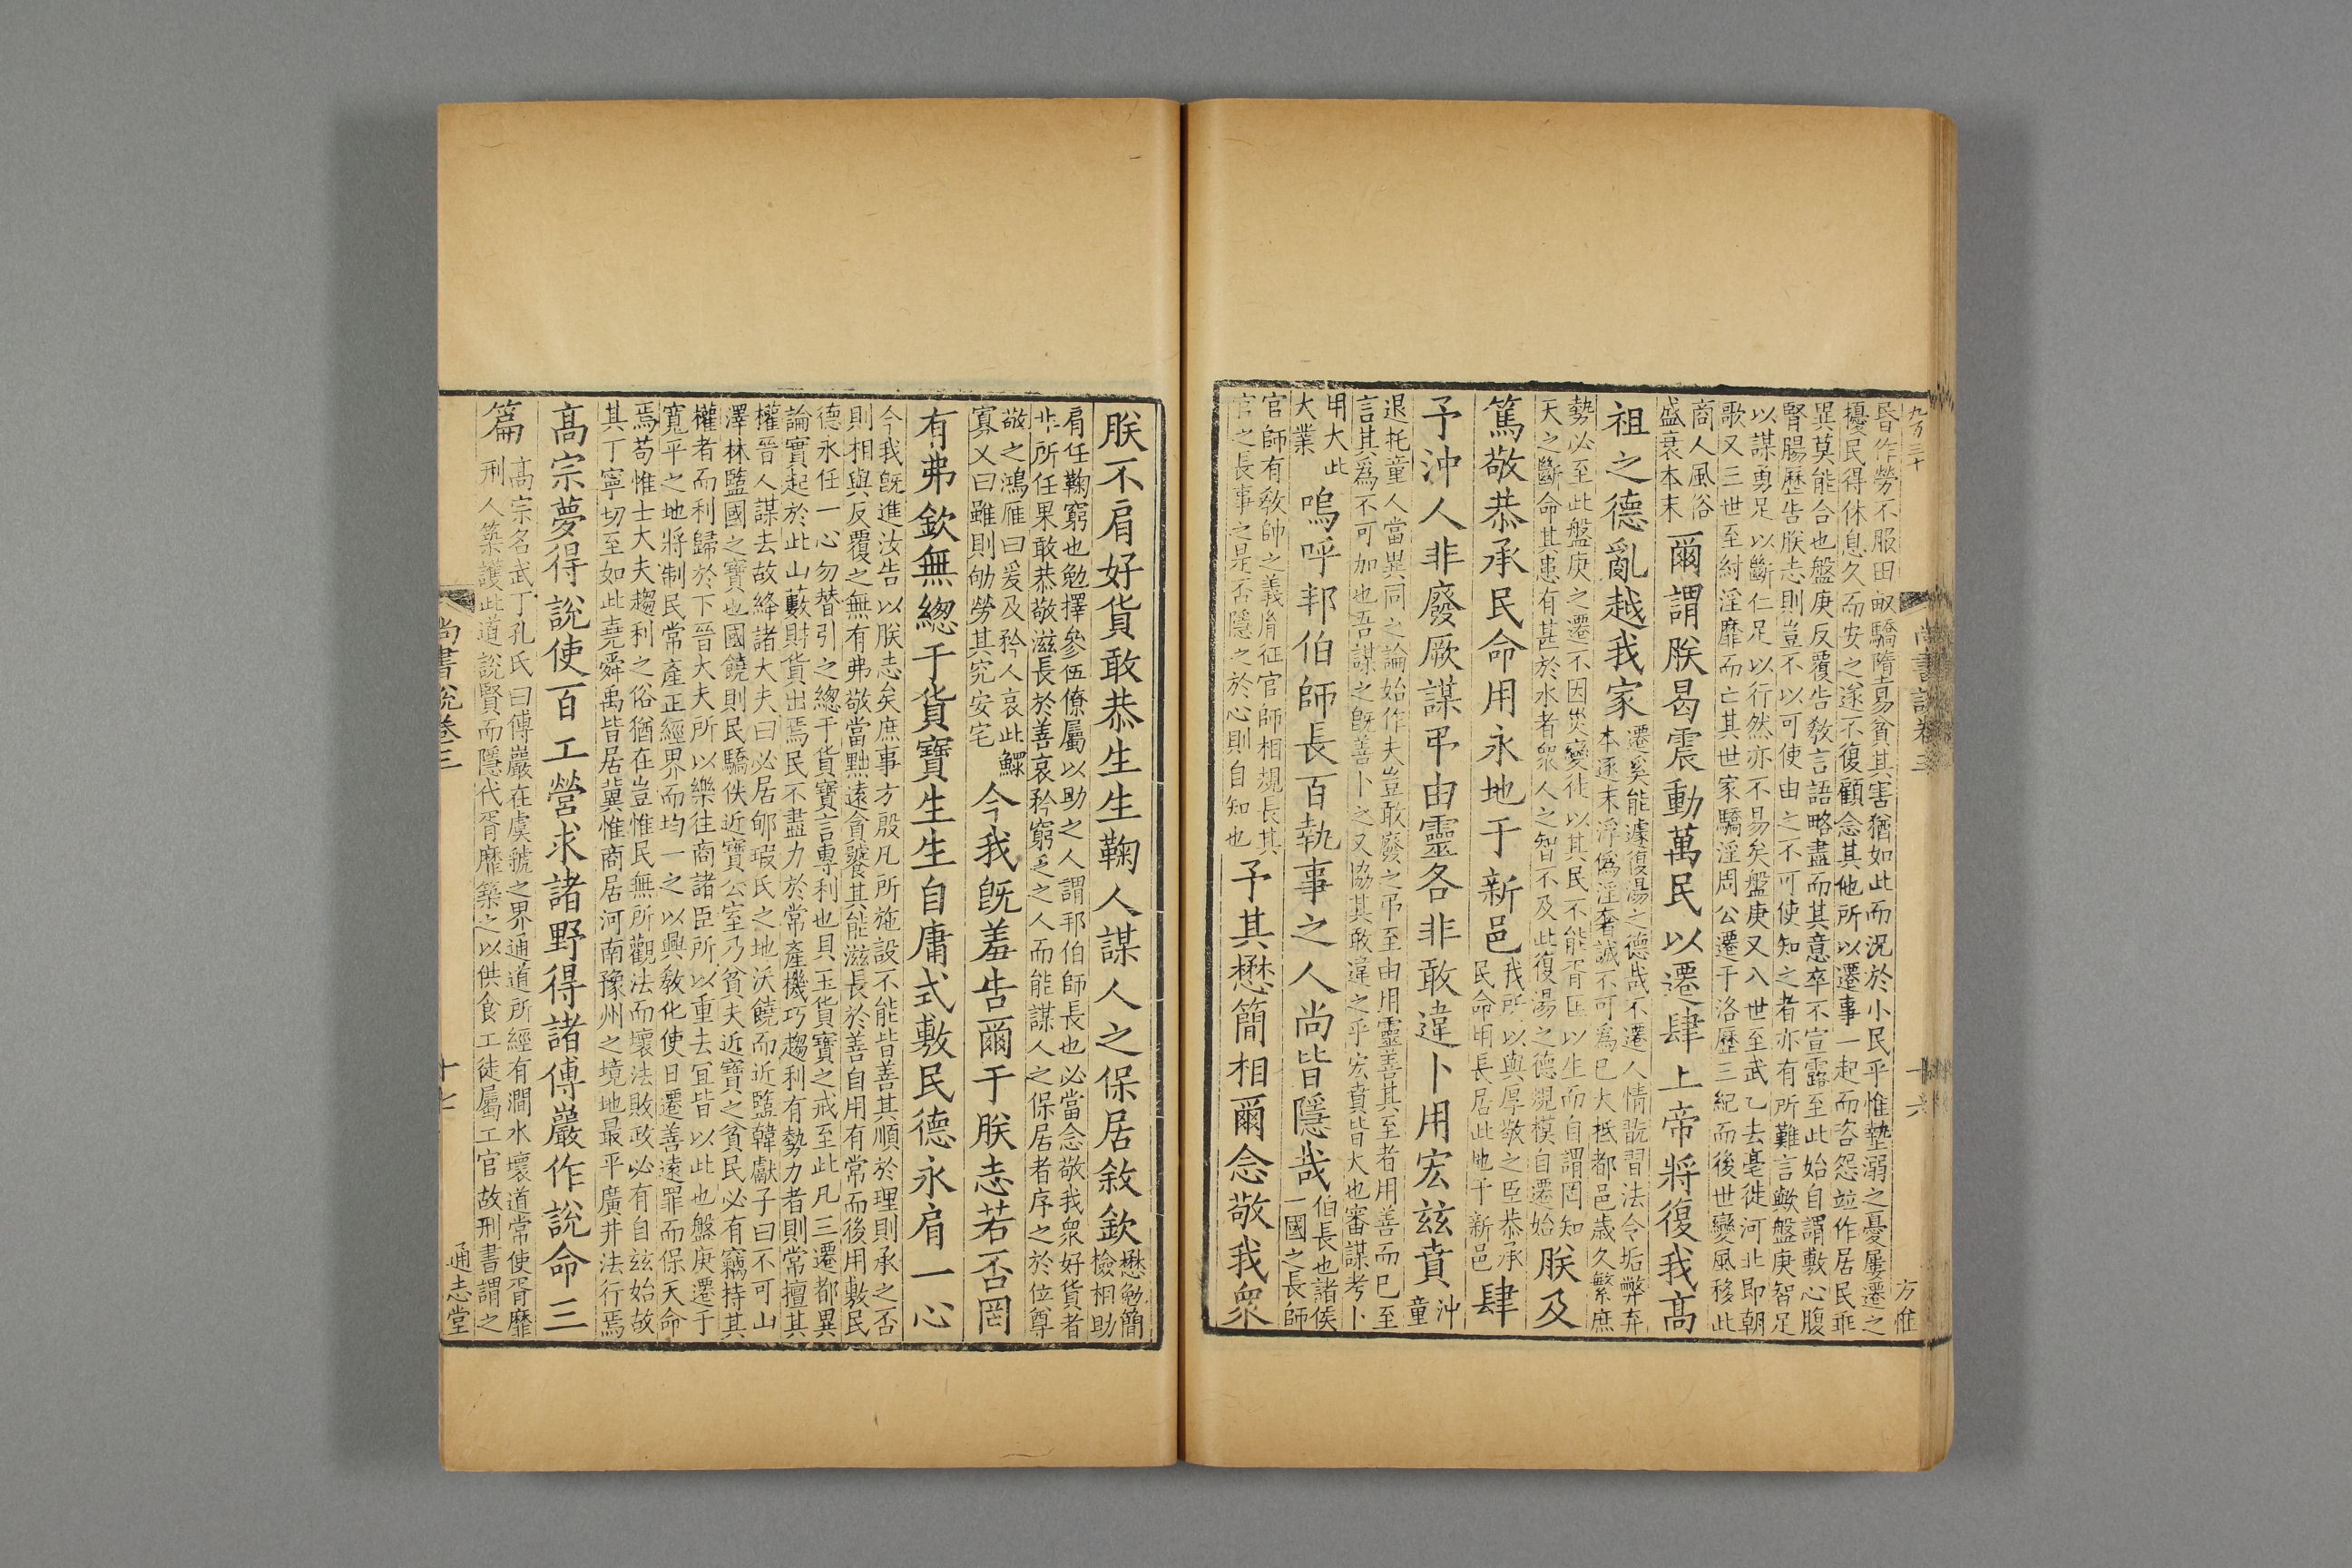 九百三十
尚書説卷三
十六
方惟
昬作勞不服田畝驕隋易貧其害猶如此而況於小民乎惟墊溺之憂屢遷之
擾民得休息久而安之遂不復顧念其他所以遷事一起而咨怨竝作居民乖
異莫能合也盤庚反覆告敎言語略盡而其意卒不宣露至此始自謂敷心腹
腎腸歷告朕志則豈不以可使由之不可使知之者亦有所難言歟盤庚智足
以謀勇足以斷仁足以行然亦不易矣盤庚又八世至武乙去亳徙河北即朝
歌又三世至紂淫靡而亡其世家驕淫周公遷于洛歷三紀而後世變風移此
商人風俗
盛衰本末
爾謂朕曷震動萬民以遷肆上帝將復我髙
祖之德亂越我家
遷奚能遽復湯之德哉不遷人情翫習法令垢弊弃
本逐末浮僞淫奢誠不可爲已大柢都邑歳久繁庶
勢必至此盤庚之遷不因災變徙以其民不能胥匡以生而自謂罔知
天之斷命其患有甚於水者衆人之智不及此復湯之德規模自遷始
朕及
篤敬恭承民命用永地于新邑
我所以與厚敬之臣恭承
民命用長居此地于新邑
肆
予沖人非廢厥謀弔由靈各非敢違卜用宏兹賁
沖
童
退托童人當異同之論始作夫豈敢廢之弔至由用靈善其至者用善而已至
言其爲不可加也吾謀之旣善卜之又協其敢違之乎宏賁皆大也審謀考卜
用大此
大業
嗚呼邦伯師長百執事之人尚皆隱哉
伯長也諸侯
一國之長師
官師有敎帥之義胤征官師相規長其
官之長事之是否隱之於心則自知也
予其懋簡相爾念敬我衆
朕不肩好貨敢恭生生鞠人謀人之保居敘欽
懋勉簡
檢相助
肩任鞠窮也勉擇參伍僚屬以助之人謂邦伯師長也必當念敬我衆好貨者
非所任果敢恭敬滋長於善哀矜窮乏之人而能謀人之保居者序之於位尊
敬之鴻雁曰爰及矜人哀此鰥
寡又曰雖則劬勞其究安宅
今我旣羞告爾于朕志若否罔
有弗欽無緫于貨寶生生自庸式敷民德永肩一心
今我旣進汝告以朕志矣庶事方殷凡所施設不能皆善其順於理則承之否
則相與反覆之無有弗敬當黜遠貪饕其能滋長於善自用有常而後用敷民
德永任一心勿替引之緫于貨寶言專利也貝玉貨寶之戒至此凡三遷都異
論實起於此山藪財貨出焉民不盡力於常產機巧趨利有勢力者則常擅其
權晉人謀去故絳諸大夫曰必居郇瑕氏之地沃饒而近盬韓獻子曰不可山
澤林盬國之寶也國饒則民驕佚近寶公室乃貧夫近寶之貧民必有竊持其
權者而利歸於下晉大夫所以樂往商諸臣所以重去冝皆以此也盤庚遷于
寬平之地將制民常產正經界而均一之以興敎化使日遷善遠罪而保天命
焉苟惟士大夫趨利之俗猶在豈惟民無所觀法而壞法敗政必有自兹始故
其丁寧切至如此堯舜禹皆居冀惟商居河南豫州之境地最平廣井法行焉
髙宗夢得說使百工營求諸野得諸傅巖作說命三
篇
髙宗名武丁孔氏曰傅巖在虞虢之界通道所經有澗水壞道常使胥靡
刑人築護此道說賢而隱代胥靡築之以供食工徒屬工官故刑書謂之
尚書説卷三
十七
通志堂